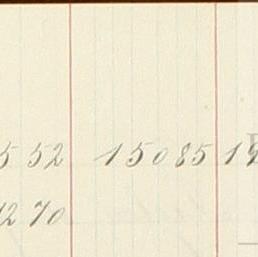 5 52 150 85 19
12 70